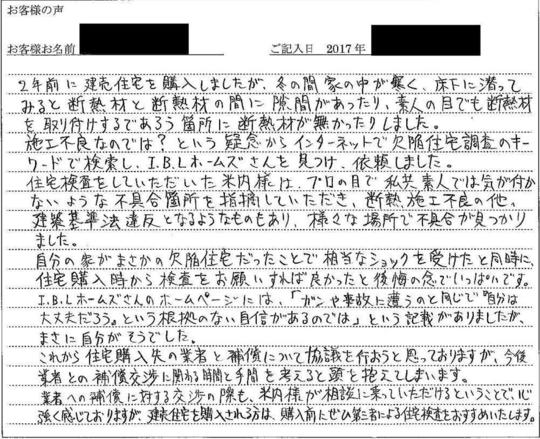 お客様の声
お客様お名前 ご記入日 2017年
2年前に建売住宅を購入しましたが、冬の間家の中が寒く、床下に潜って
みると断熱材と断熱材の間に隙間があったり、素人の目でも断熱材
を取り付けするであろう箇所に断熱材が無かったりしました。
施工不良なのでは?という疑念からインターネットで欠陥住宅調査のキー
ワードで検索し、I.B.Lホームズさんを見つけ、依頼しました。
住宅検査をしていただいた米内様は、プロの目で私共素人では気が付か
ないような不具合箇所を指摘していただき、断熱施工不良の他、
建築基準法違反となるようなものもあり、様々な場所で不具合が見つかり
ました。
自分の家がまさかの欠陥住宅だったことで相当なショックを受けたと同時に、
住宅購入時から検査をお願いすれば良かったと後悔の念でいっぱいです。
I.B.Lホームズさんのホームページには、「ガンや事故に遭うのと同じで“自分は
大丈夫だろう。という根拠のない自信があるのでは」という記載がありましたが、
まさに自分がそうでした。
これから住宅購入先の業者と補償について協議を行おうと思っておりますが、今後
業者との補償交渉に関わる時間と手間を考えると頭を抱えてしまいます。
業者への補償に対する交渉の際も、米内様が相談に乗っていただけるということで、心
強く感じておりますが、建売住宅を購入される方は、購入前にぜひ第三者による住宅検査をおすすめいたします。